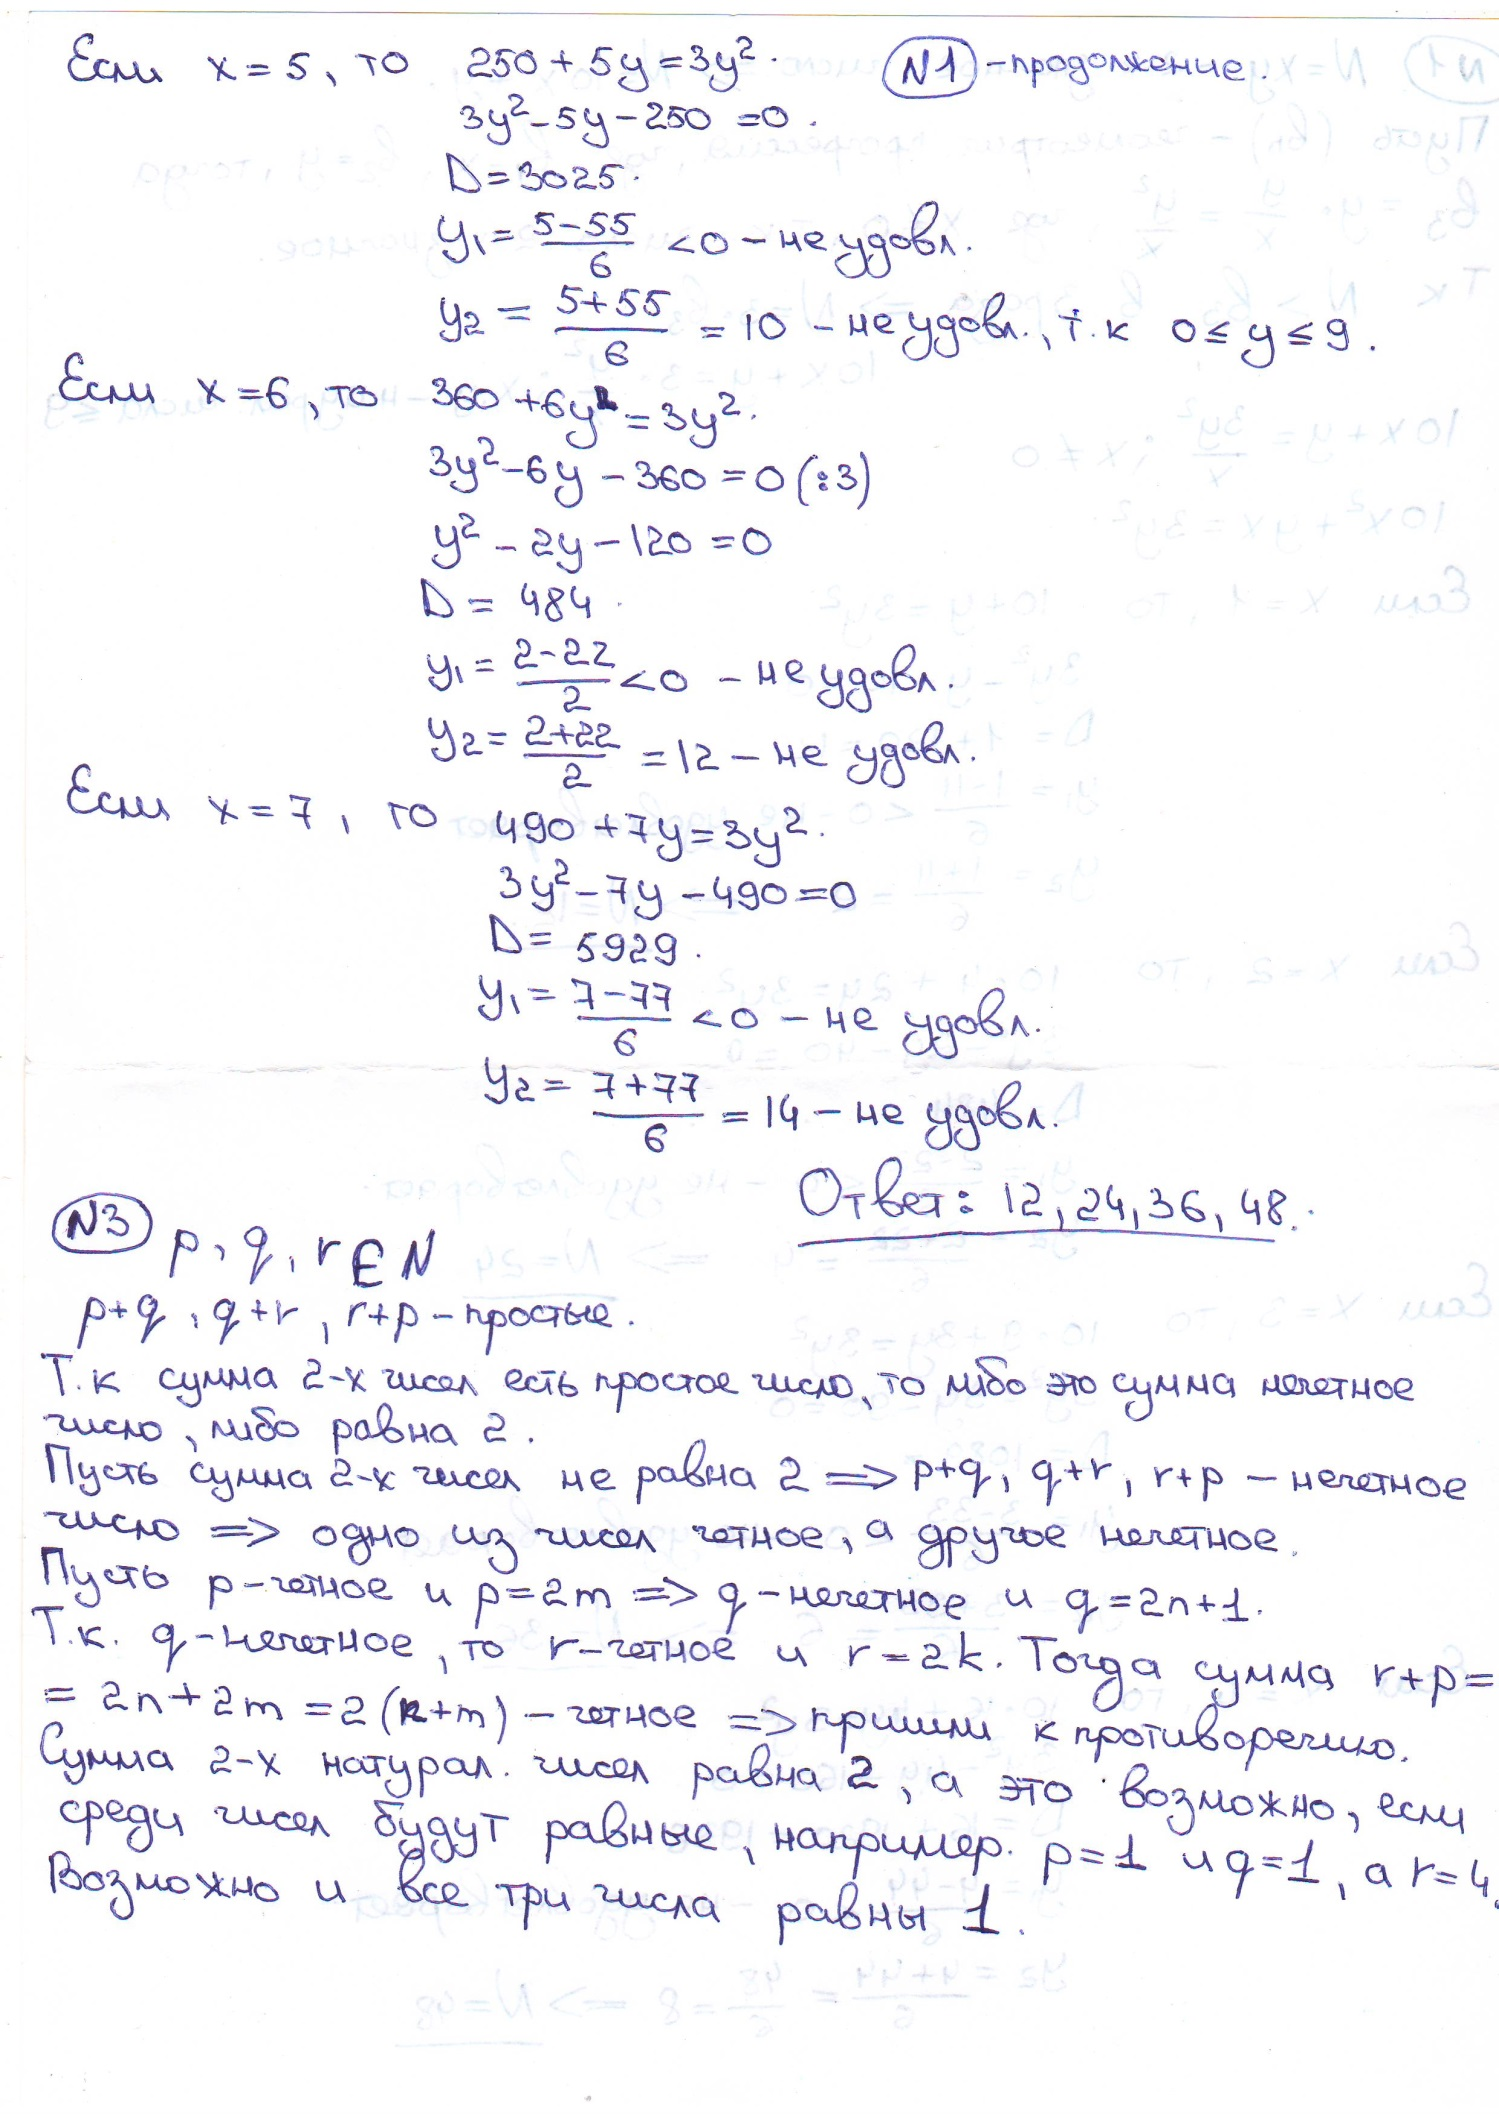 Если x = 5, то 250 + 5y = 3y². N1 - продолжение.
3y² - 5y - 250 = 0.
D = 3025.
y₁ = (5-55)/6 < 0 - не удовл.
y₂ = (5+55)/6 = 10 - не удовл., т.к 0 ≤ y ≤ 9.
Если x = 6, то 360 + 6y = 3y².
3y² - 6y - 360 = 0 (:3)
y² - 2y - 120 = 0
D = 484.
y₁ = (2-22)/2 < 0 - не удовл.
y₂ = (2+22)/2 = 12 - не удовл.
Если x = 7, то 490 + 7y = 3y².
3y² - 7y - 490 = 0
D = 5929.
y₁ = (7-77)/6 < 0 - не удовл.
y₂ = (7+77)/6 = 14 - не удовл.
Ответ: 12, 24, 36, 48.
N3 p, q, r ∈ N
p+q, q+r, r+p - простые.
Т.к сумма 2-х чисел есть простое число, то либо это сумма нечетное
число, либо равна 2.
Пусть сумма 2-х чисел не равна 2 => p+q, q+r, r+p - нечетное
число => одно из чисел четное, а другое нечетное.
Пусть p - четное и p = 2m => q - нечетное и q = 2n+1.
Т.к. q - нечетное, то r - четное и r = 2k. Тогда сумма r+p =
= 2n + 2m = 2(k+m) - четное => пришли к противоречию.
Сумма 2-х натурал. чисел равна 2, а это возможно, если
среди чисел будут равные, например. p=1 и q=1, а r=4.
Возможно и все три числа равны 1.